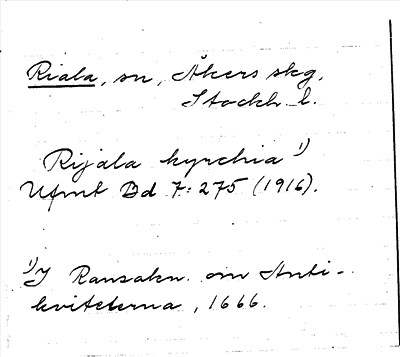 Riala, sn, Åkers skg,
Stockh. l.
Rijala kyrchia 1)
Ufmt Bd 7:275 (1916).
1) I Ransakn. om Anti-
kviteterna, 1666.